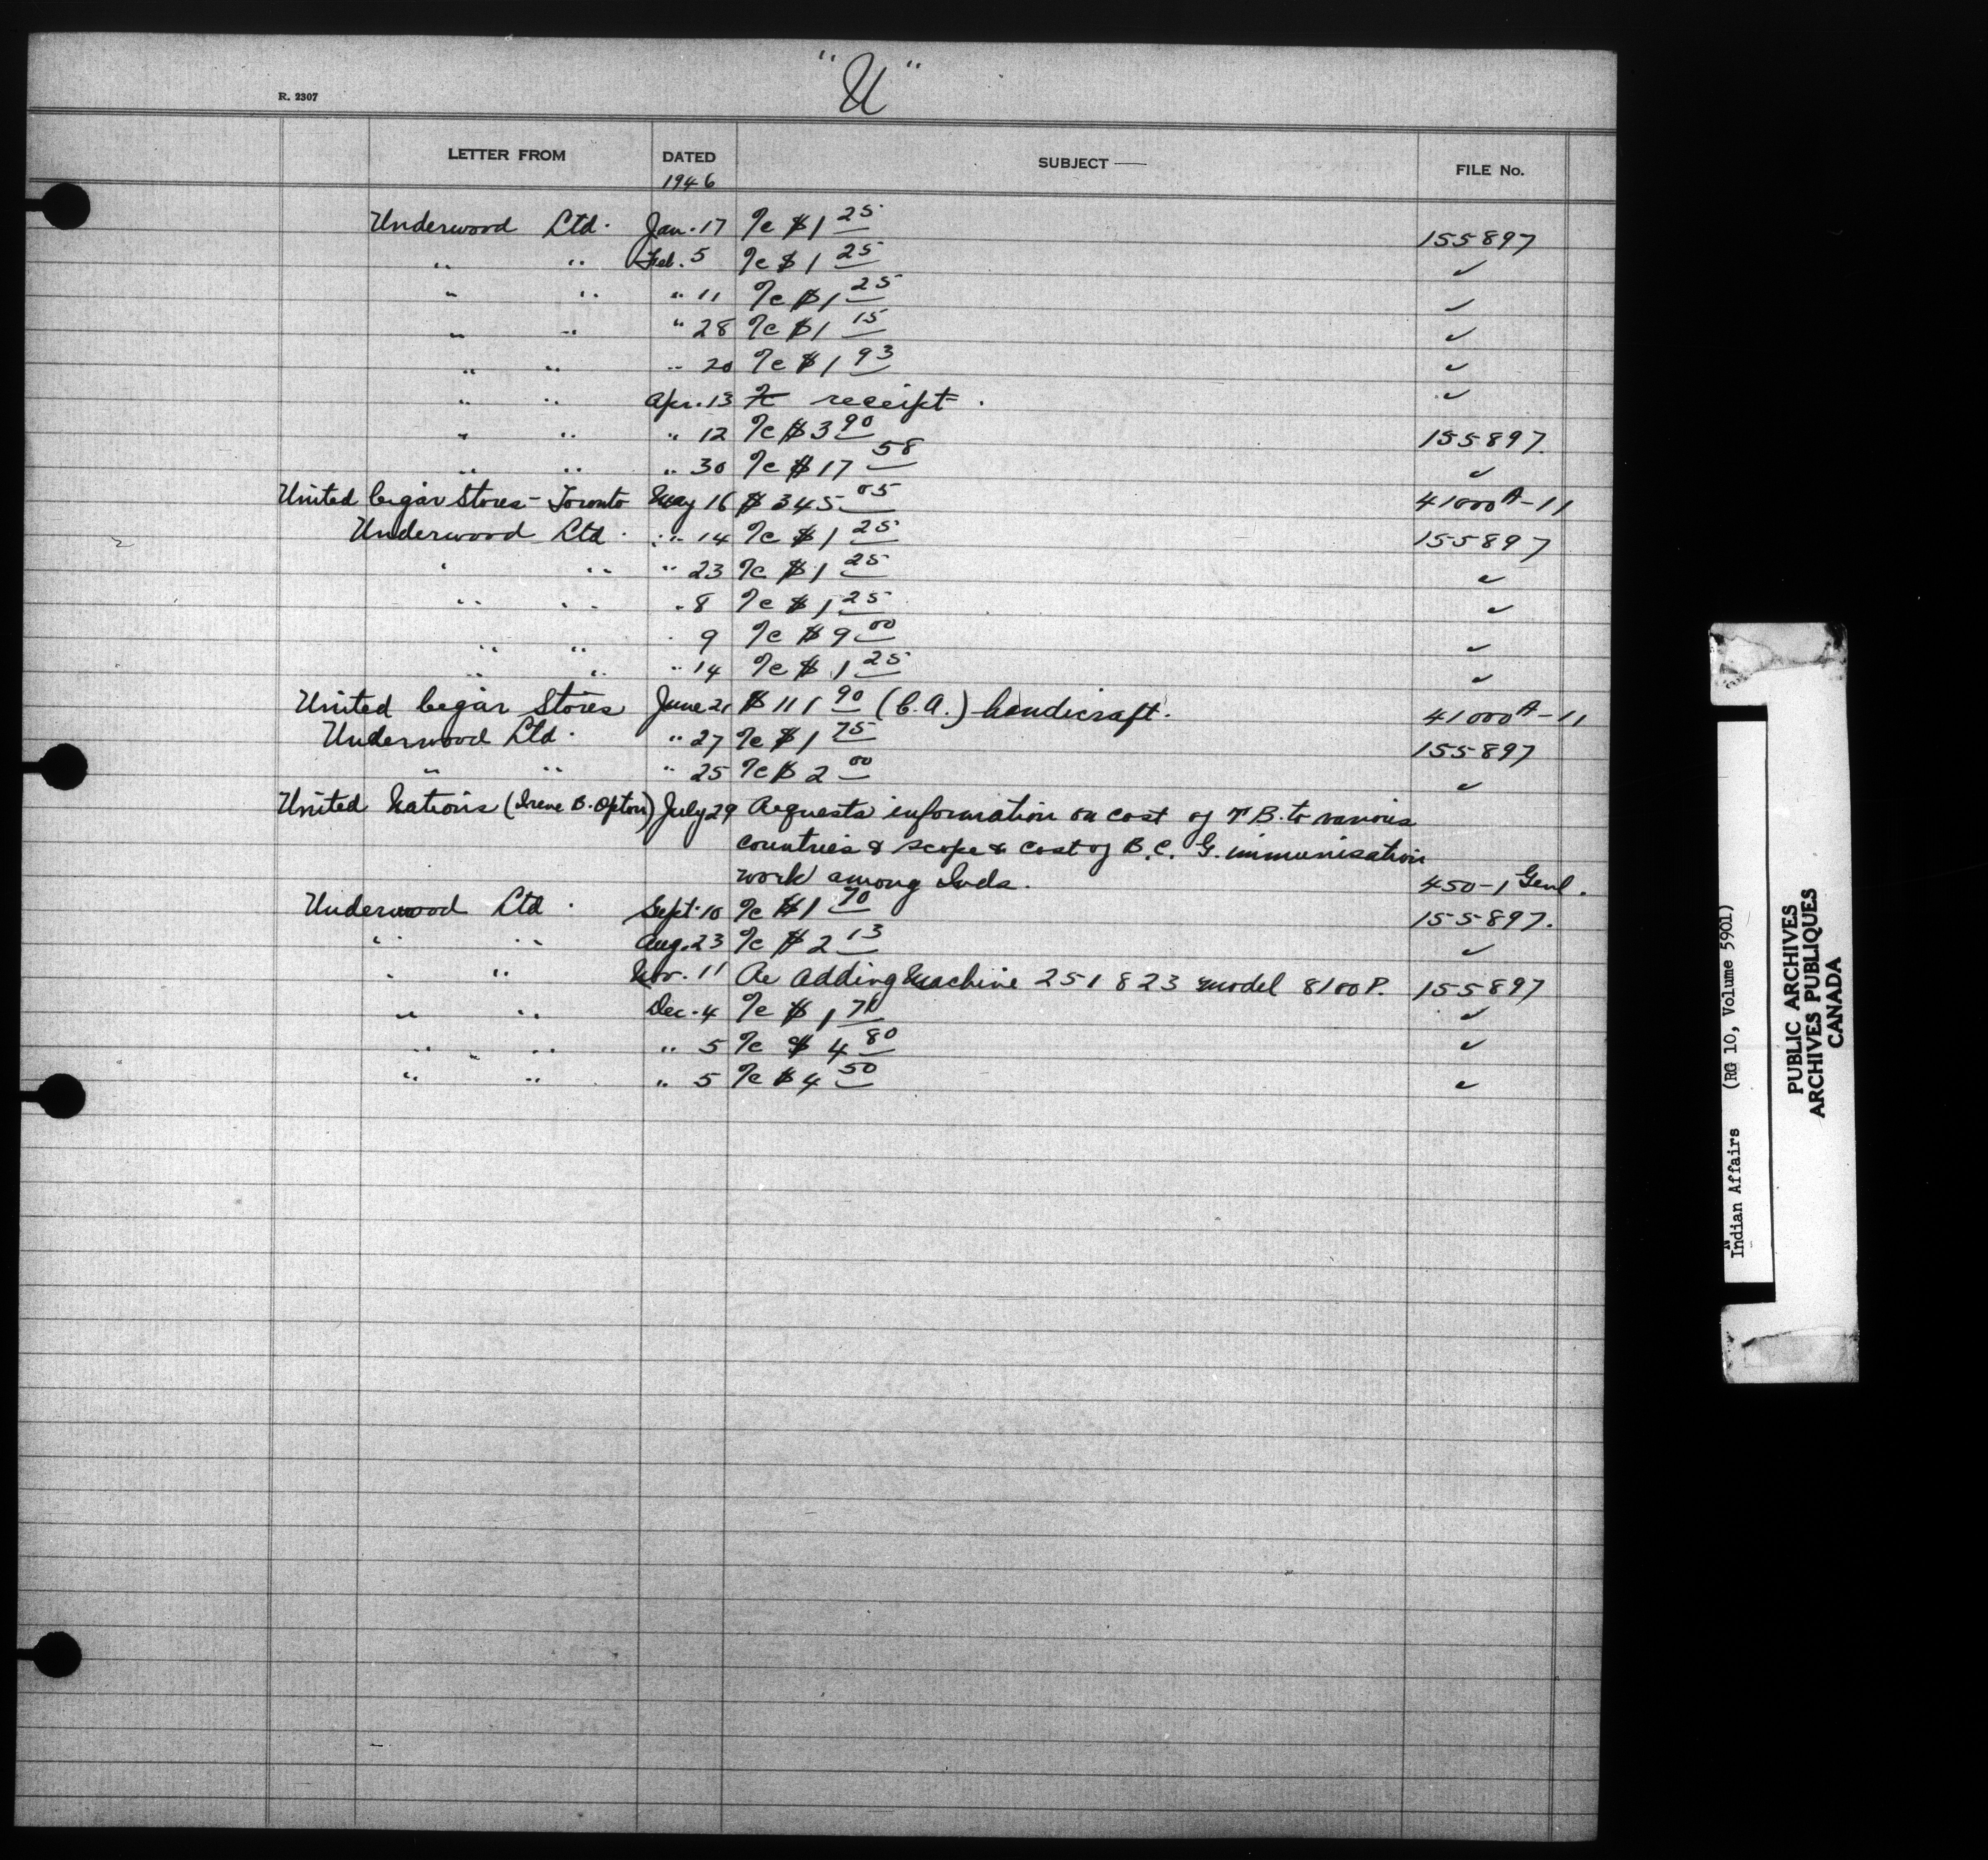 "U"
R. 2307
LETTER FROM DATED SUBJECT — FILE No.
1946
Underwood Ltd. Jan. 17 %c $1 25 155897
" " Feb. 5 %c $1 25 ✓
" " " 11 %c $1 25 ✓
" " " 28 %c $1 15 ✓
" " " 20 %c $1 93 ✓
" " Apr. 13 receipt. ✓
" " " 12 %c $3 90 155897.
" " " 30 %c $17 58 ✓
United Cigar Stores - Toronto May 16 $345 05 41000A-11
Underwood Ltd. " 14 %c $1 25 155897
" " " 23 %c $1 25 ✓
" " " 8 %c $1 25 ✓
" " " 9 %c $9 00 ✓
" " " 14 %c $1 25 ✓
United Cigar Stores June 21 $111 90 (C.A.) handicraft. 41000A-11
Underwood Ltd. " 27 %c $1 75 155897
" " " 25 %c $2 00 ✓
United Nations (Irene B. Opton) July 29 Requests information on cost of T.B. to various
countries & scope & cost of B.C.G. immunisation
work among Inds. 450-1 Genl.
Underwood Ltd. Sept. 10 %c $1 70 155897.
" " Aug. 23 %c $2 13 ✓
" " Nov. 11 Re Adding Machine 251823 model 8100P. 155897
" " Dec. 4 %c $1 70 ✓
" " " 5 %c $4 80 ✓
" " " 5 %c $4 50 ✓
Indian Affairs (RG 10, Volume 5901)
PUBLIC ARCHIVES
ARCHIVES PUBLIQUES
CANADA